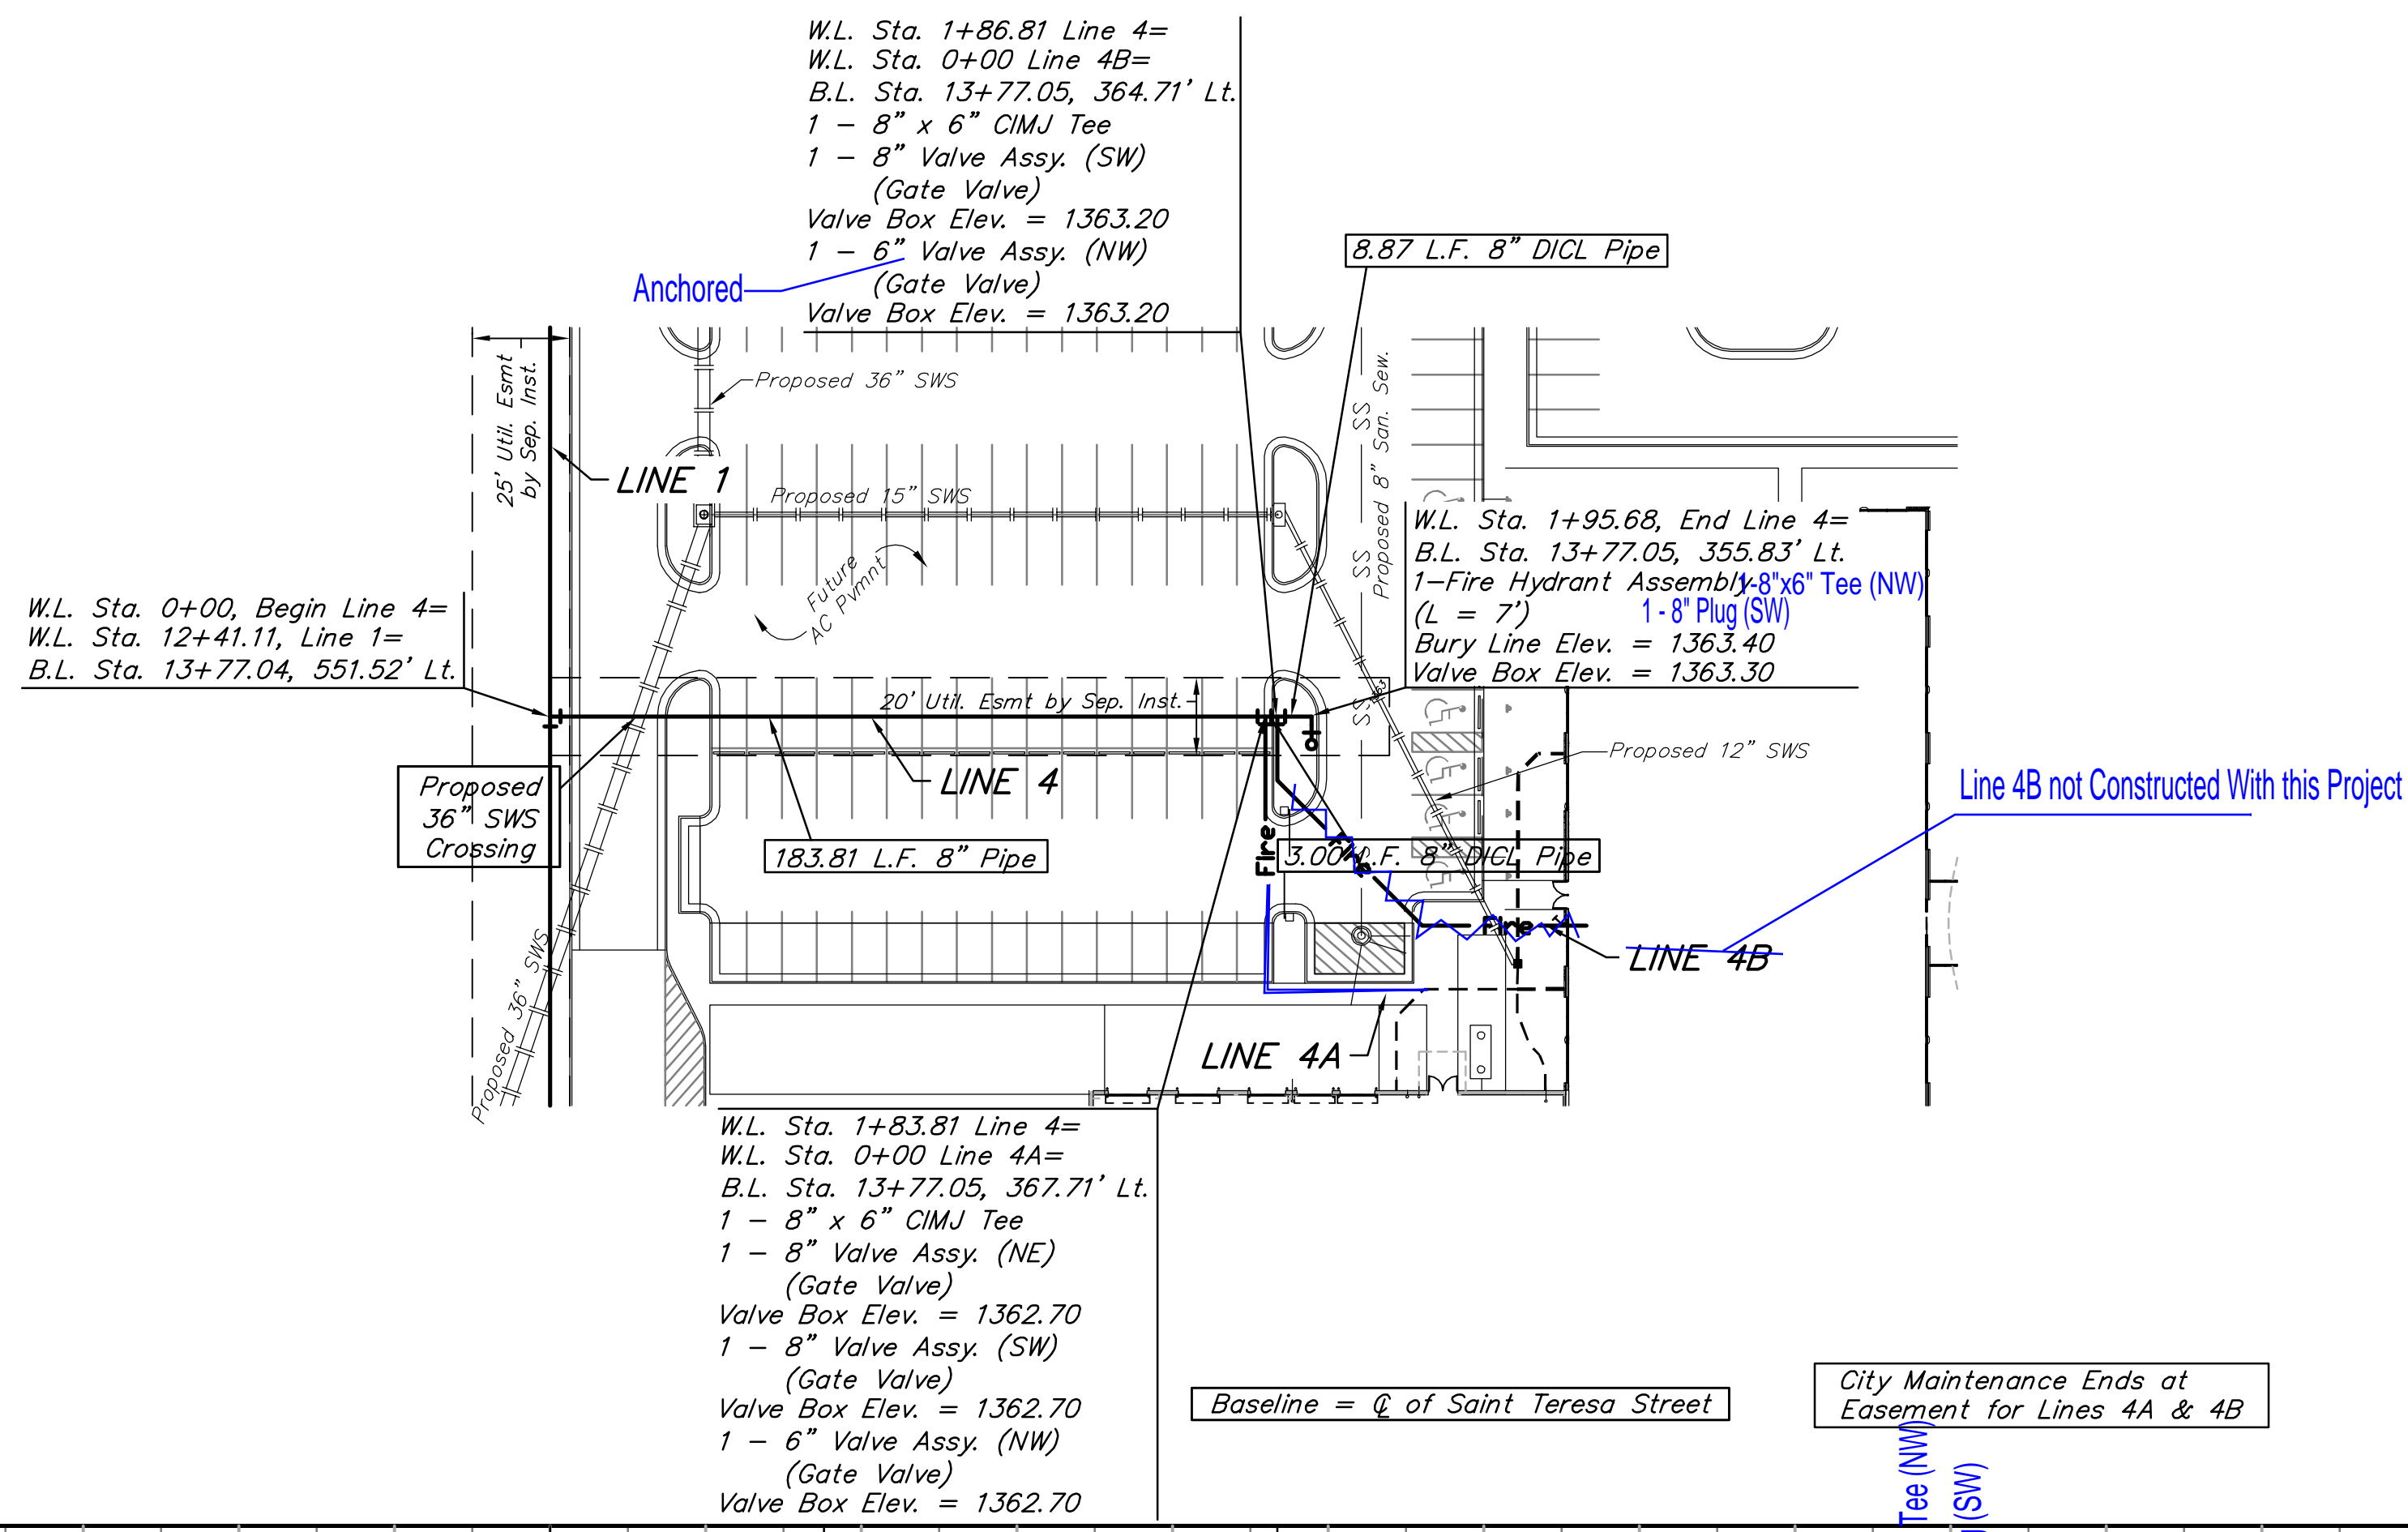 W.L. Sta. 1+86.81 Line 4=
W.L. Sta. 0+00 Line 4B=
B.L. Sta. 13+77.05, 364.71' Lt.
1 - 8" x 6" CIMJ Tee
1 - 8" Valve Assy. (SW)
(Gate Valve)
Valve Box Elev. = 1363.20
1 - 6" Valve Assy. (NW)
(Gate Valve)
Valve Box Elev. = 1363.20
Anchored
8.87 L.F. 8" DICL Pipe
25' Util. Esmt
by Sep. Inst.
Proposed 36" SWS
LINE 1
Proposed 15" SWS
SS
Proposed 8" San. Sew.
SS
SS
Future
AC Pvmnt
W.L. Sta. 1+95.68, End Line 4=
B.L. Sta. 13+77.05, 355.83' Lt.
1-Fire Hydrant Assembly
1-8"x6" Tee (NW)
(L = 7')
1 - 8" Plug (SW)
Bury Line Elev. = 1363.40
Valve Box Elev. = 1363.30
W.L. Sta. 0+00, Begin Line 4=
W.L. Sta. 12+41.11, Line 1=
B.L. Sta. 13+77.04, 551.52' Lt.
20' Util. Esmt by Sep. Inst.
Proposed 12" SWS
Proposed
36" SWS
Crossing
LINE 4
183.81 L.F. 8" Pipe
Fire
3.00 L.F. 8" DICL Pipe
Line 4B not Constructed With this Project
Fire
LINE 4B
Proposed 36" SWS
LINE 4A
W.L. Sta. 1+83.81 Line 4=
W.L. Sta. 0+00 Line 4A=
B.L. Sta. 13+77.05, 367.71' Lt.
1 - 8" x 6" CIMJ Tee
1 - 8" Valve Assy. (NE)
(Gate Valve)
Valve Box Elev. = 1362.70
1 - 8" Valve Assy. (SW)
(Gate Valve)
Valve Box Elev. = 1362.70
1 - 6" Valve Assy. (NW)
(Gate Valve)
Valve Box Elev. = 1362.70
Baseline = ℄ of Saint Teresa Street
City Maintenance Ends at
Easement for Lines 4A & 4B
Tee (NW)
(SW)